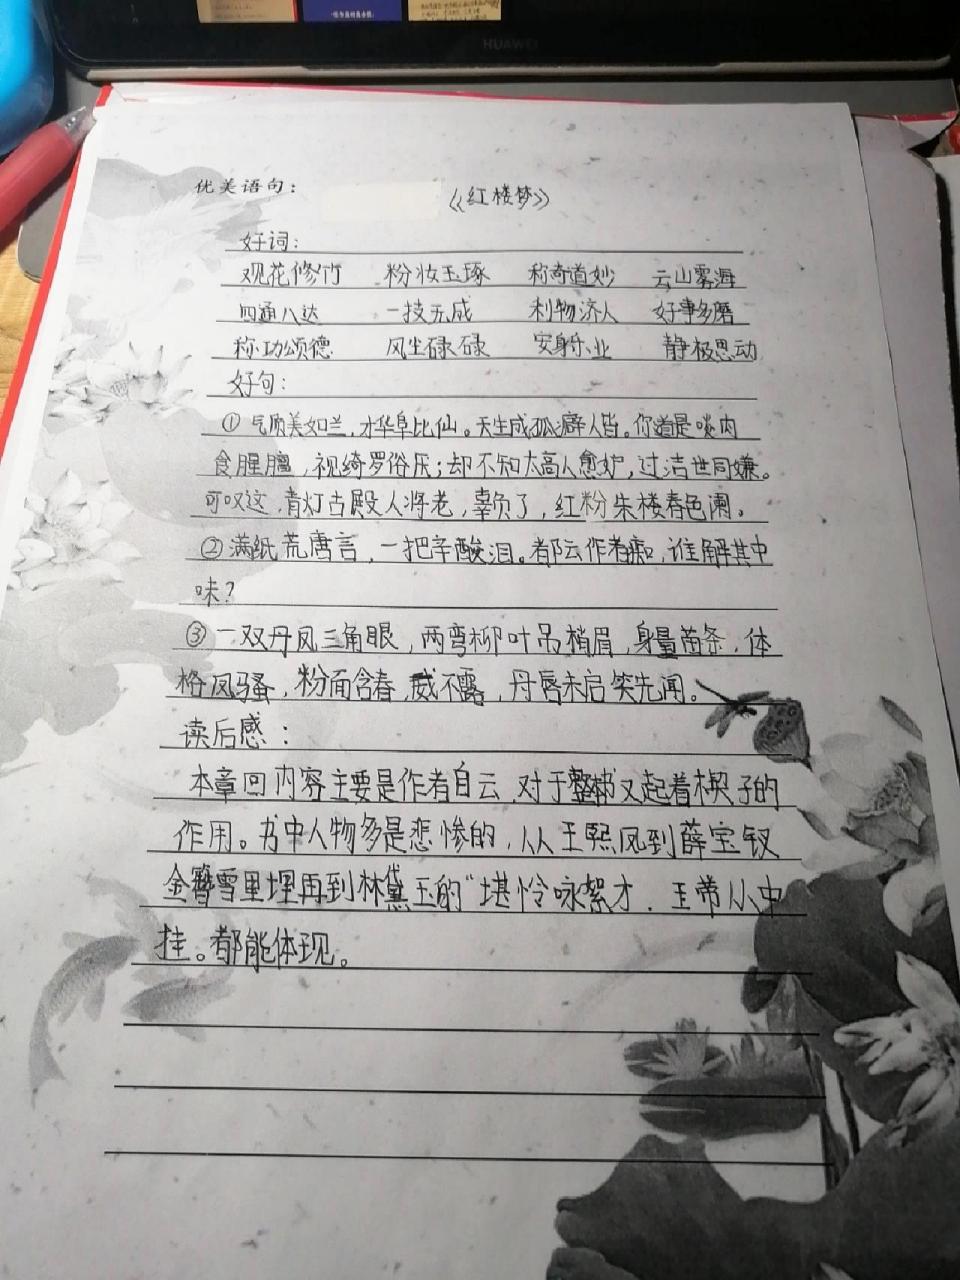 HUAWEI
优美语句：
《红楼梦》
好词：
观花修竹 粉妆玉琢 称奇道妙 云山雾海
四通八达 一技无成 利物济人 好事多磨
称功颂德 风尘碌碌 安身乐业 静极思动
好句：
①气质美如兰，才华阜比仙。天生成孤癖人皆。你道是啖肉
食腥膻，视绮罗俗厌；却不知太高人愈妒，过洁世同嫌。
可叹这，青灯古殿人将老，辜负了，红粉朱楼春色阑。
②满纸荒唐言，一把辛酸泪。都云作者痴，谁解其中
味？
③一双丹凤三角眼，两弯柳叶吊梢眉，身量苗条，体
格风骚，粉面含春威不露，丹唇未启笑先闻。
读后感：
本章回内容主要是作者自云，对于整书又起着楔子的
作用。书中人物多是悲惨的，从王熙凤到薛宝钗
金簪雪里埋再到林黛玉的“堪怜咏絮才．玉带从中
挂。都能体现。